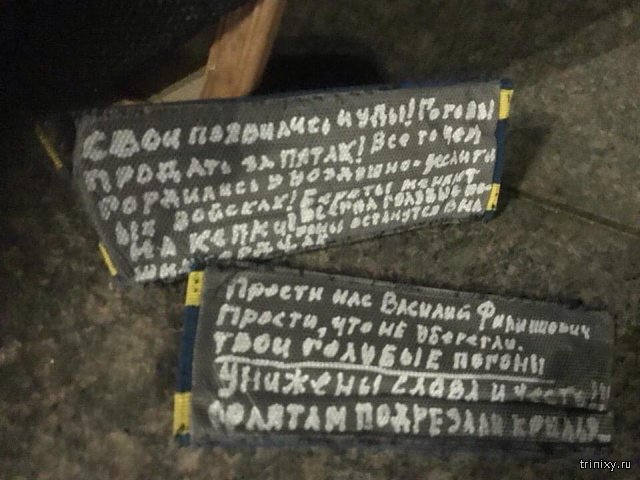 СВОИ ПОЯВИЛИСЬ ИУДЫ! ГОТОВЫ
ПРОДАТЬ ЗА ПЯТАК! ВСЕ ТО ЧЕМ
ГОРДИЛИСЬ У ВОЗДУШНО-ДЕСАНТН
ЫХ ВОЙСКАХ! БЕРЕТЫ МЕНЯЮТ
НА КЕПКУ! ГОЛУБЫЕ ПО-
ГОНЫ ОСТАНУТСЯ В НА
ШИХ СЕРДЦАХ
Прости нас Василий Филиппович
Прости, что не уберегли.
ТВОИ ГОЛУБЫЕ ПОГОНЫ
Унижены слава и честь!!!
ПОДРЕЗАЛИ КРЫЛЬЯ...
trinixy.ru